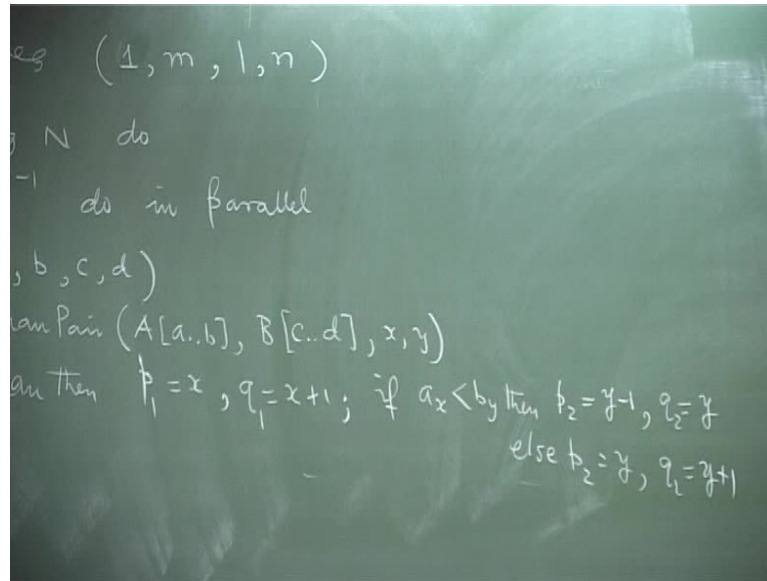 es (1, m, 1, n)
g N do
-1 do in parallel
, b, c, d)
ian Pair (A[a..b], B[c..d], x, y)
ian then p₁ = x, q₁ = x+1; if aₓ < b_y then p₂ = y-1, q₂ = y
else p₂ = y, q₂ = y+1